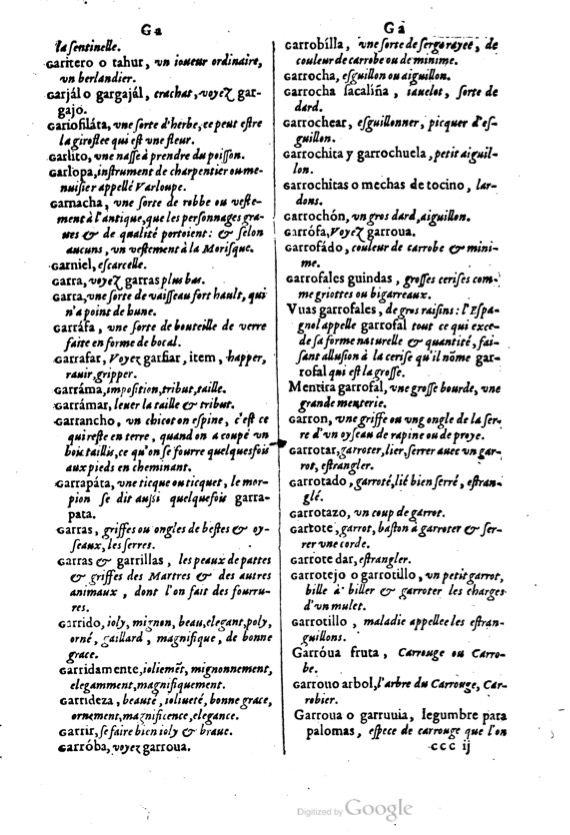 Ga
la sentinelle.
Garitero o tahur, vn ioueur ordinaire,
vn berlandier.
Garjál o gargajál, crachat, voyez gar-
gajo.
Gariofiláta, vne sorte d'herbe, ce peut estre
la giroflee qui est vne fleur.
Garlito, vne nasse à prendre du poisson.
Garlopa, instrument de charpentier ou me-
nuisier appellé Varloupe.
Garnacha, vne sorte de robbe ou veste-
ment à l'antique, que les personnages gra-
ues & de qualité portoient: & selon
aucuns, vn vestement à la Morisque.
Garniel, escarcelle.
Garra, voyez garras plus bas.
Garra, vne sorte de vaisseau fort hault, qui
n'a point de hune.
Garráfa, vne sorte de bouteille de verre
faite en forme de bocal.
Garrafar, Voyez garfiar, item, happer,
rauir, gripper.
Garráma, imposition, tribut, taille.
Garrámar, leuer la taille & tribut.
Garrancho, vn chicot on espine, c'est ce
qui reste en terre, quand on a coupé vn
bois taillis, ce qu'on se fourre quelquesfois
aux pieds en cheminant.
Garrapáta, vne ticque ou ticquet, le mor-
pion se dit aussi quelquefois garra-
pata.
Garras, griffes ou ongles de bestes & oy-
seaux, les serres.
Garras & garrillas, les peaux de pattes
& griffes des Martres & des autres
animaux, dont l'on fait des fourru-
res.
Garrido, ioly, mignon, beau, elegant, poly,
orné, gaillard, magnifique, de bonne
grace.
Garridamente, ioliemẽt, mignonnement,
elegamment, magnifiquement.
Garrideza, beauté, ioliueté, bonne grace,
ornement, magnificence, elegance.
Garrir, se faire bien ioly & braue.
Garróba, voyez garroua.
Ga
Garrobílla, vne sorte de serge rayee, de
couleur de carrobe ou de minime.
Garrocha, esguillon ou aiguillon.
Garrocha sacalíña, iauelot, sorte de
dard.
Garrochear, esguillonner, picquer d'es-
guillon.
Garrochita y garrochuela, petit aiguil-
lon.
Garrochitas o mechas de tocino, lar-
dons.
Garrochón, vn gros dard, aiguillon.
Garrófa, Voyez garroua.
Garrofádo, couleur de carrobe & mini-
me.
Garrofales guindas, grosses cerises com-
me griottes ou bigarreaux.
Vuas garrofales, de gros raisins: l'Espa-
gnol appelle garrofal tout ce qui exce-
de sa forme naturelle & quantité, fai-
sant allusion à la cerise qu'il nõme gar-
rofal qui est la grosse.
Mentira garrofal, vne grosse bourde, vne
grande menterie.
Garron, vne griffe ou vng ongle de la ser-
re d'vn oyseau de rapine ou de proye.
Garrotar, garroter, lier, serrer auec vn gar-
rot, estrangler.
Garrotado, garroté, lié bien serré, estran-
glé.
Garrotazo, vn coup de garrot.
Garrote, garrot, baston à garroter & ser-
rer vne corde.
Garrote dar, estrangler.
Garrotejo o garrotillo, vn petit garrot,
bille à biller & garroter les charges
d'vn mulet.
Garrotillo, maladie appellee les estran-
guillons.
Garróua fruta, Carrouge ou Carro-
be.
Garrouo arbol, l'arbre du Carrouge, Car-
robier.
Garroua o garruuia, legumbre para
palomas, espece de carrouge que l'on
ccc ij
Digitized by Google